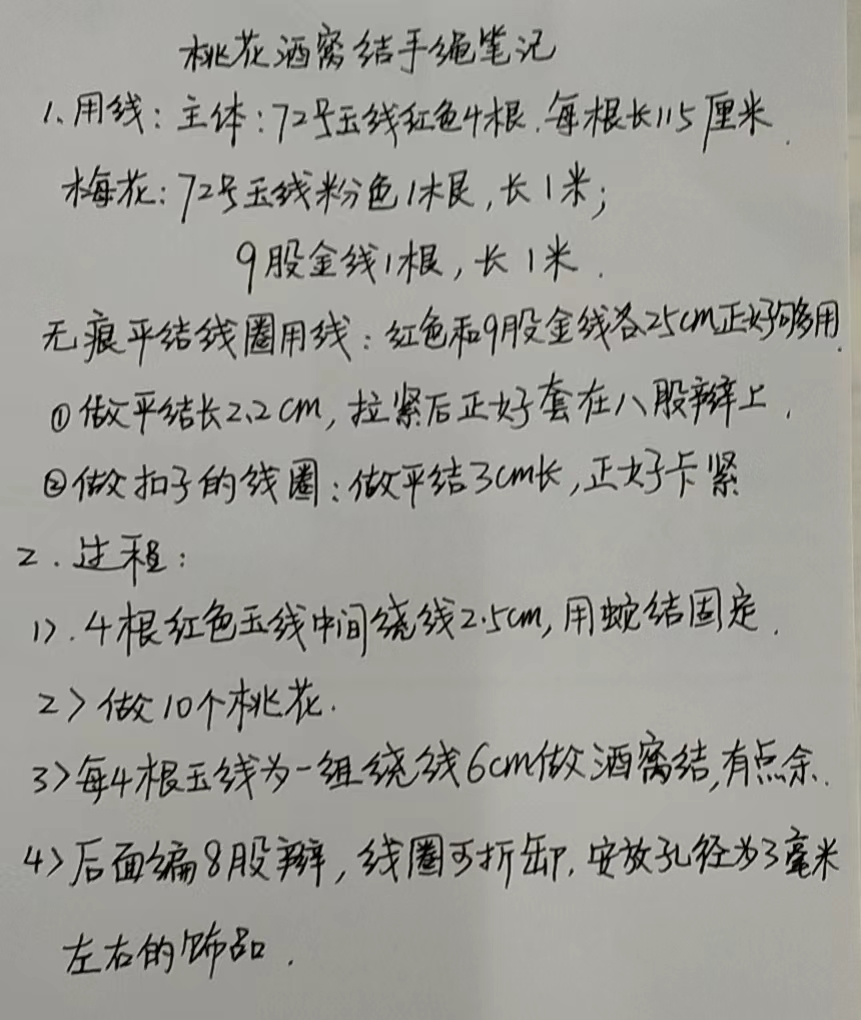 桃花酒窝结手绳笔记
1、用线：主体：72号玉线红色4根，每根长115厘米．
梅花：72号玉线粉色1根，长1米；
9股金线1根，长1米．
无痕平结线圈用线：红色和9股金线各25cm正好够用．
①做平结长2.2cm，拉紧后正好套在八股辫上．
②做扣子的线圈：做平结3cm长，正好卡紧
2．过程：
1＞．4根红色玉线中间绕线2.5cm，用蛇结固定．
2＞做10个桃花．
3＞每4根玉线为一组绕线6cm做酒窝结，有点余．
4＞后面编8股辫，线圈可折卸，安放孔径为3毫米
左右的饰品．